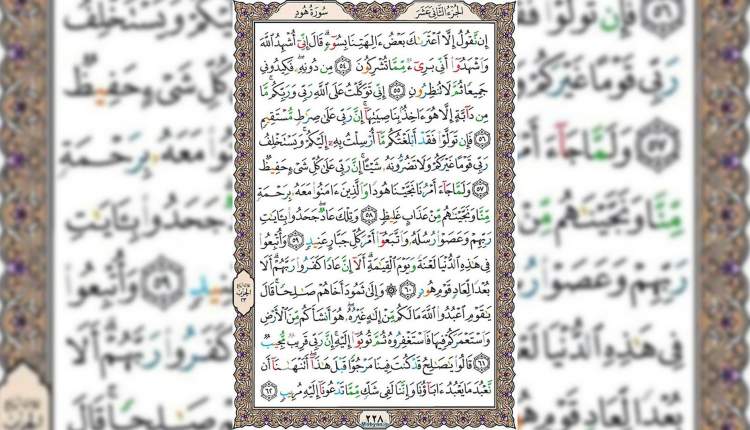 الجزء الثاني عشر
سورة هود
إِن نَّقُولُ إِلَّا ٱعۡتَرَىٰكَ بَعۡضُ ءَالِهَتِنَا بِسُوٓءٖۗ قَالَ إِنِّيٓ أُشۡهِدُ ٱللَّهَ
وَٱشۡهَدُوٓاْ أَنِّي بَرِيٓءٞ مِّمَّا تُشۡرِكُونَ ٥٤ مِن دُونِهِۦۖ فَكِيدُونِي
جَمِيعٗا ثُمَّ لَا تُنظِرُونِ ٥٥ إِنِّي تَوَكَّلۡتُ عَلَى ٱللَّهِ رَبِّي وَرَبِّكُمۚ مَّا
مِن دَآبَّةٍ إِلَّا هُوَ ءَاخِذُۢ بِنَاصِيَتِهَآۚ إِنَّ رَبِّي عَلَىٰ صِرَٰطٖ مُّسۡتَقِيمٖ
٥٦ فَإِن تَوَلَّوۡاْ فَقَدۡ أَبۡلَغۡتُكُم مَّآ أُرۡسِلۡتُ بِهِۦٓ إِلَيۡكُمۡۚ وَيَسۡتَخۡلِفُ
رَبِّي قَوۡمًا غَيۡرَكُمۡ وَلَا تَضُرُّونَهُۥ شَيۡـًٔاۚ إِنَّ رَبِّي عَلَىٰ كُلِّ شَيۡءٍ حَفِيظٞ
٥٧ وَلَمَّا جَآءَ أَمۡرُنَا نَجَّيۡنَا هُودٗا وَٱلَّذِينَ ءَامَنُواْ مَعَهُۥ بِرَحۡمَةٖ
مِّنَّا وَنَجَّيۡنَٰهُم مِّنۡ عَذَابٍ غَلِيظٖ ٥٨ وَتِلۡكَ عَادٞۖ جَحَدُواْ بِـَٔايَٰتِ
رَبِّهِمۡ وَعَصَوۡاْ رُسُلَهُۥ وَٱتَّبَعُوٓاْ أَمۡرَ كُلِّ جَبَّارٍ عَنِيدٖ ٥٩ وَأُتۡبِعُواْ
فِي هَٰذِهِ ٱلدُّنۡيَا لَعۡنَةٗ وَيَوۡمَ ٱلۡقِيَٰمَةِۗ أَلَآ إِنَّ عَادٗا كَفَرُواْ رَبَّهُمۡۗ أَلَا
بُعۡدٗا لِّعَادٖ قَوۡمِ هُودٖ ٦٠ ۞ وَإِلَىٰ ثَمُودَ أَخَاهُمۡ صَٰلِحٗاۚ قَالَ
يَٰقَوۡمِ ٱعۡبُدُواْ ٱللَّهَ مَا لَكُم مِّنۡ إِلَٰهٍ غَيۡرُهُۥۖ هُوَ أَنشَأَكُم مِّنَ ٱلۡأَرۡضِ
وَٱسۡتَعۡمَرَكُمۡ فِيهَا فَٱسۡتَغۡفِرُوهُ ثُمَّ تُوبُوٓاْ إِلَيۡهِۚ إِنَّ رَبِّي قَرِيبٞ مُّجِيبٞ
٦١ قَالُواْ يَٰصَٰلِحُ قَدۡ كُنتَ فِينَا مَرۡجُوّٗا قَبۡلَ هَٰذَآۖ أَتَنۡهَىٰنَآ أَن
نَّعۡبُدَ مَا يَعۡبُدُ ءَابَآؤُنَا وَإِنَّنَا لَفِي شَكّٖ مِّمَّا تَدۡعُونَآ إِلَيۡهِ مُرِيبٖ ٦٢
٢٢٨